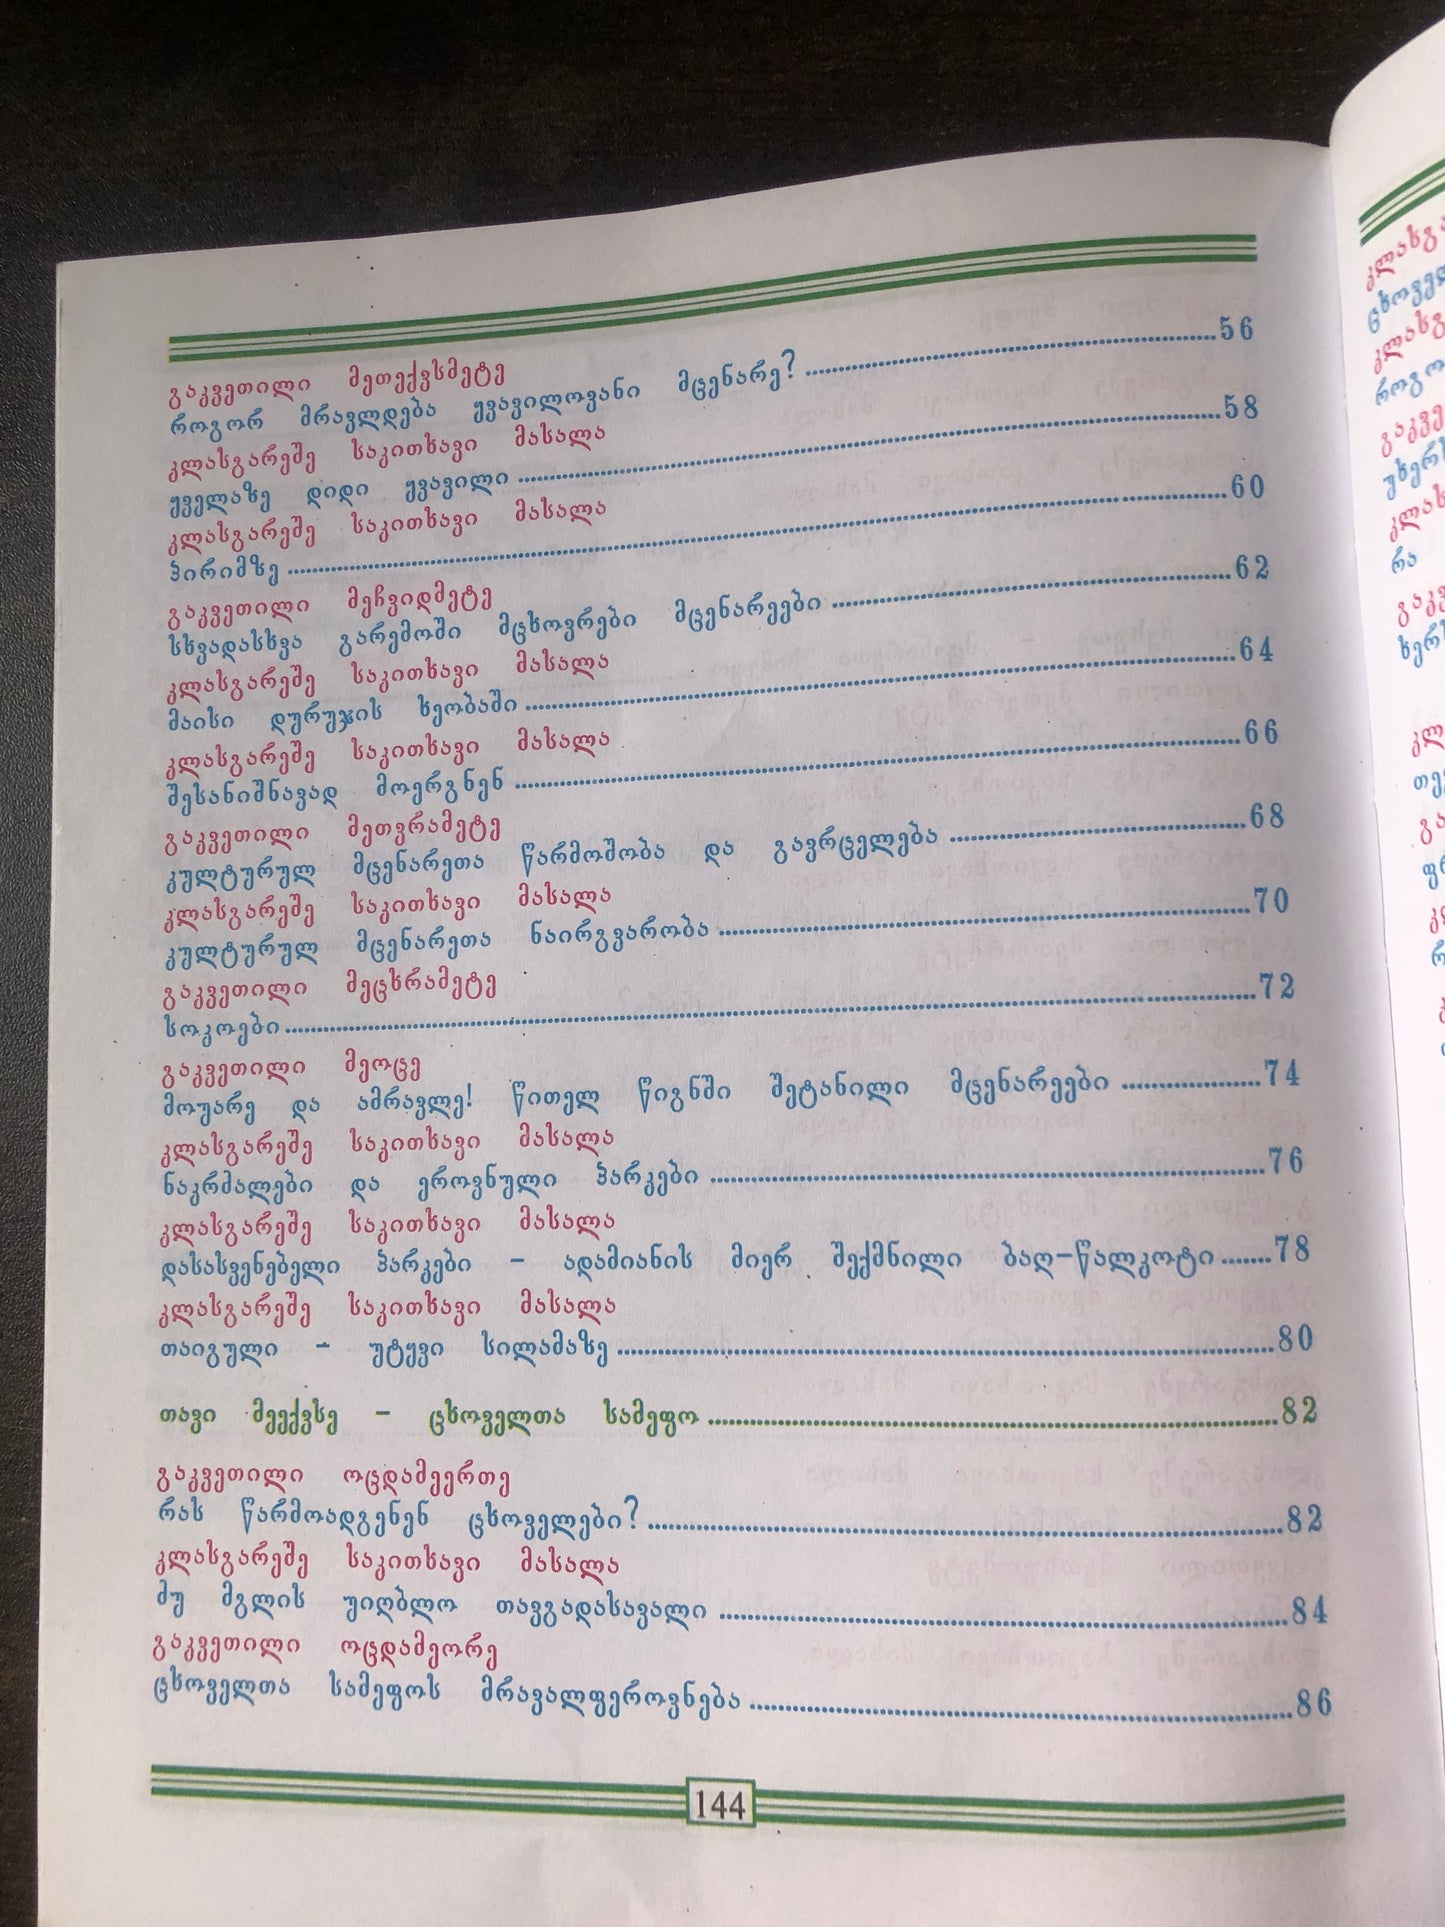 გაკვეთილი მეთექვსმეტე
როგორ მრავლდება ყვავილოვანი მცენარე? 56
კლასგარეშე საკითხავი მასალა
ყველაზე დიდი ყვავილი 58
კლასგარეშე საკითხავი მასალა
პირიმზე 60
გაკვეთილი მეჩვიდმეტე
სხვადასხვა გარემოში მცხოვრები მცენარეები 62
კლასგარეშე საკითხავი მასალა
მაისი დურუჯის ხეობაში 64
კლასგარეშე საკითხავი მასალა
შესანიშნავად მოერგნენ 66
გაკვეთილი მეთვრამეტე
კულტურულ მცენარეთა წარმოშობა და გავრცელება 68
კლასგარეშე საკითხავი მასალა
კულტურულ მცენარეთა ნაირგვარობა 70
გაკვეთილი მეცხრამეტე
სოკოები 72
გაკვეთილი მეოცე
მოუარე და ამრავლე! წითელ წიგნში შეტანილი მცენარეები 74
კლასგარეშე საკითხავი მასალა
ნაკრძალები და ეროვნული პარკები 76
კლასგარეშე საკითხავი მასალა
დასასვენებელი პარკები – ადამიანის მიერ შექმნილი ბაღ-წალკოტი 78
კლასგარეშე საკითხავი მასალა
თაიგული – უტყვი სილამაზე 80
თავი მეექვსე – ცხოველთა სამეფო 82
გაკვეთილი ოცდამეერთე
რას წარმოადგენენ ცხოველები? 82
კლასგარეშე საკითხავი მასალა
მუ მგლის უიღბლო თავგადასავალი 84
გაკვეთილი ოცდამეორე
ცხოველთა სამეფოს მრავალფეროვნება 86
144